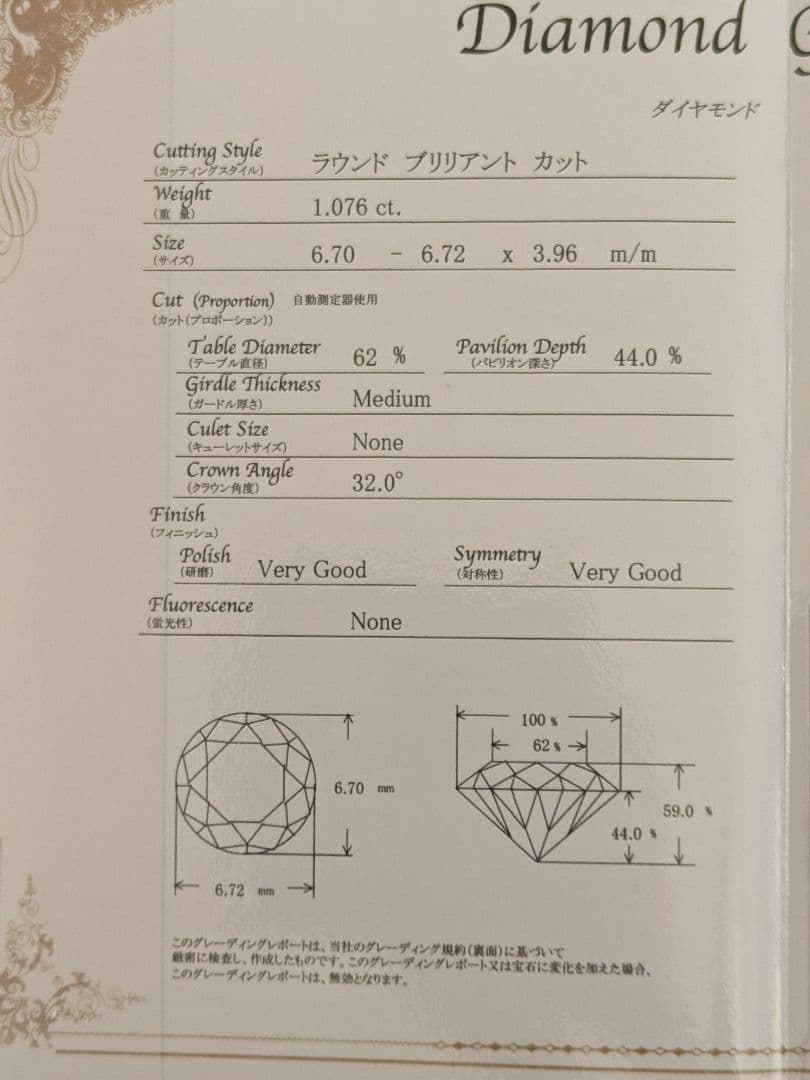 Diamond
ダイヤモンド
Cutting Style
(カッティングスタイル)
ラウンド ブリリアント カット
Weight
(重 量)
1.076 ct.
Size
(サイズ)
6.70 - 6.72 x 3.96 m/m
Cut (Proportion) 自動測定器使用
(カット(プロポーション))
Table Diameter
(テーブル直径)
62 %
Pavilion Depth
(パビリオン深さ)
44.0 %
Girdle Thickness
(ガードル厚さ)
Medium
Culet Size
(キューレットサイズ)
None
Crown Angle
(クラウン角度)
32.0°
Finish
(フィニッシュ)
Polish
(研磨)
Very Good
Symmetry
(対称性)
Very Good
Fluorescence
(蛍光性)
None
6.70 mm
6.72 mm
100 %
62 %
59.0 %
44.0 %
このグレーディングレポートは、当社のグレーディング規約(裏面)に基づいて
厳密に検査し、作成したものです。このグレーディングレポート又は宝石に変化を加えた場合、
このグレーディングレポートは、無効となります。